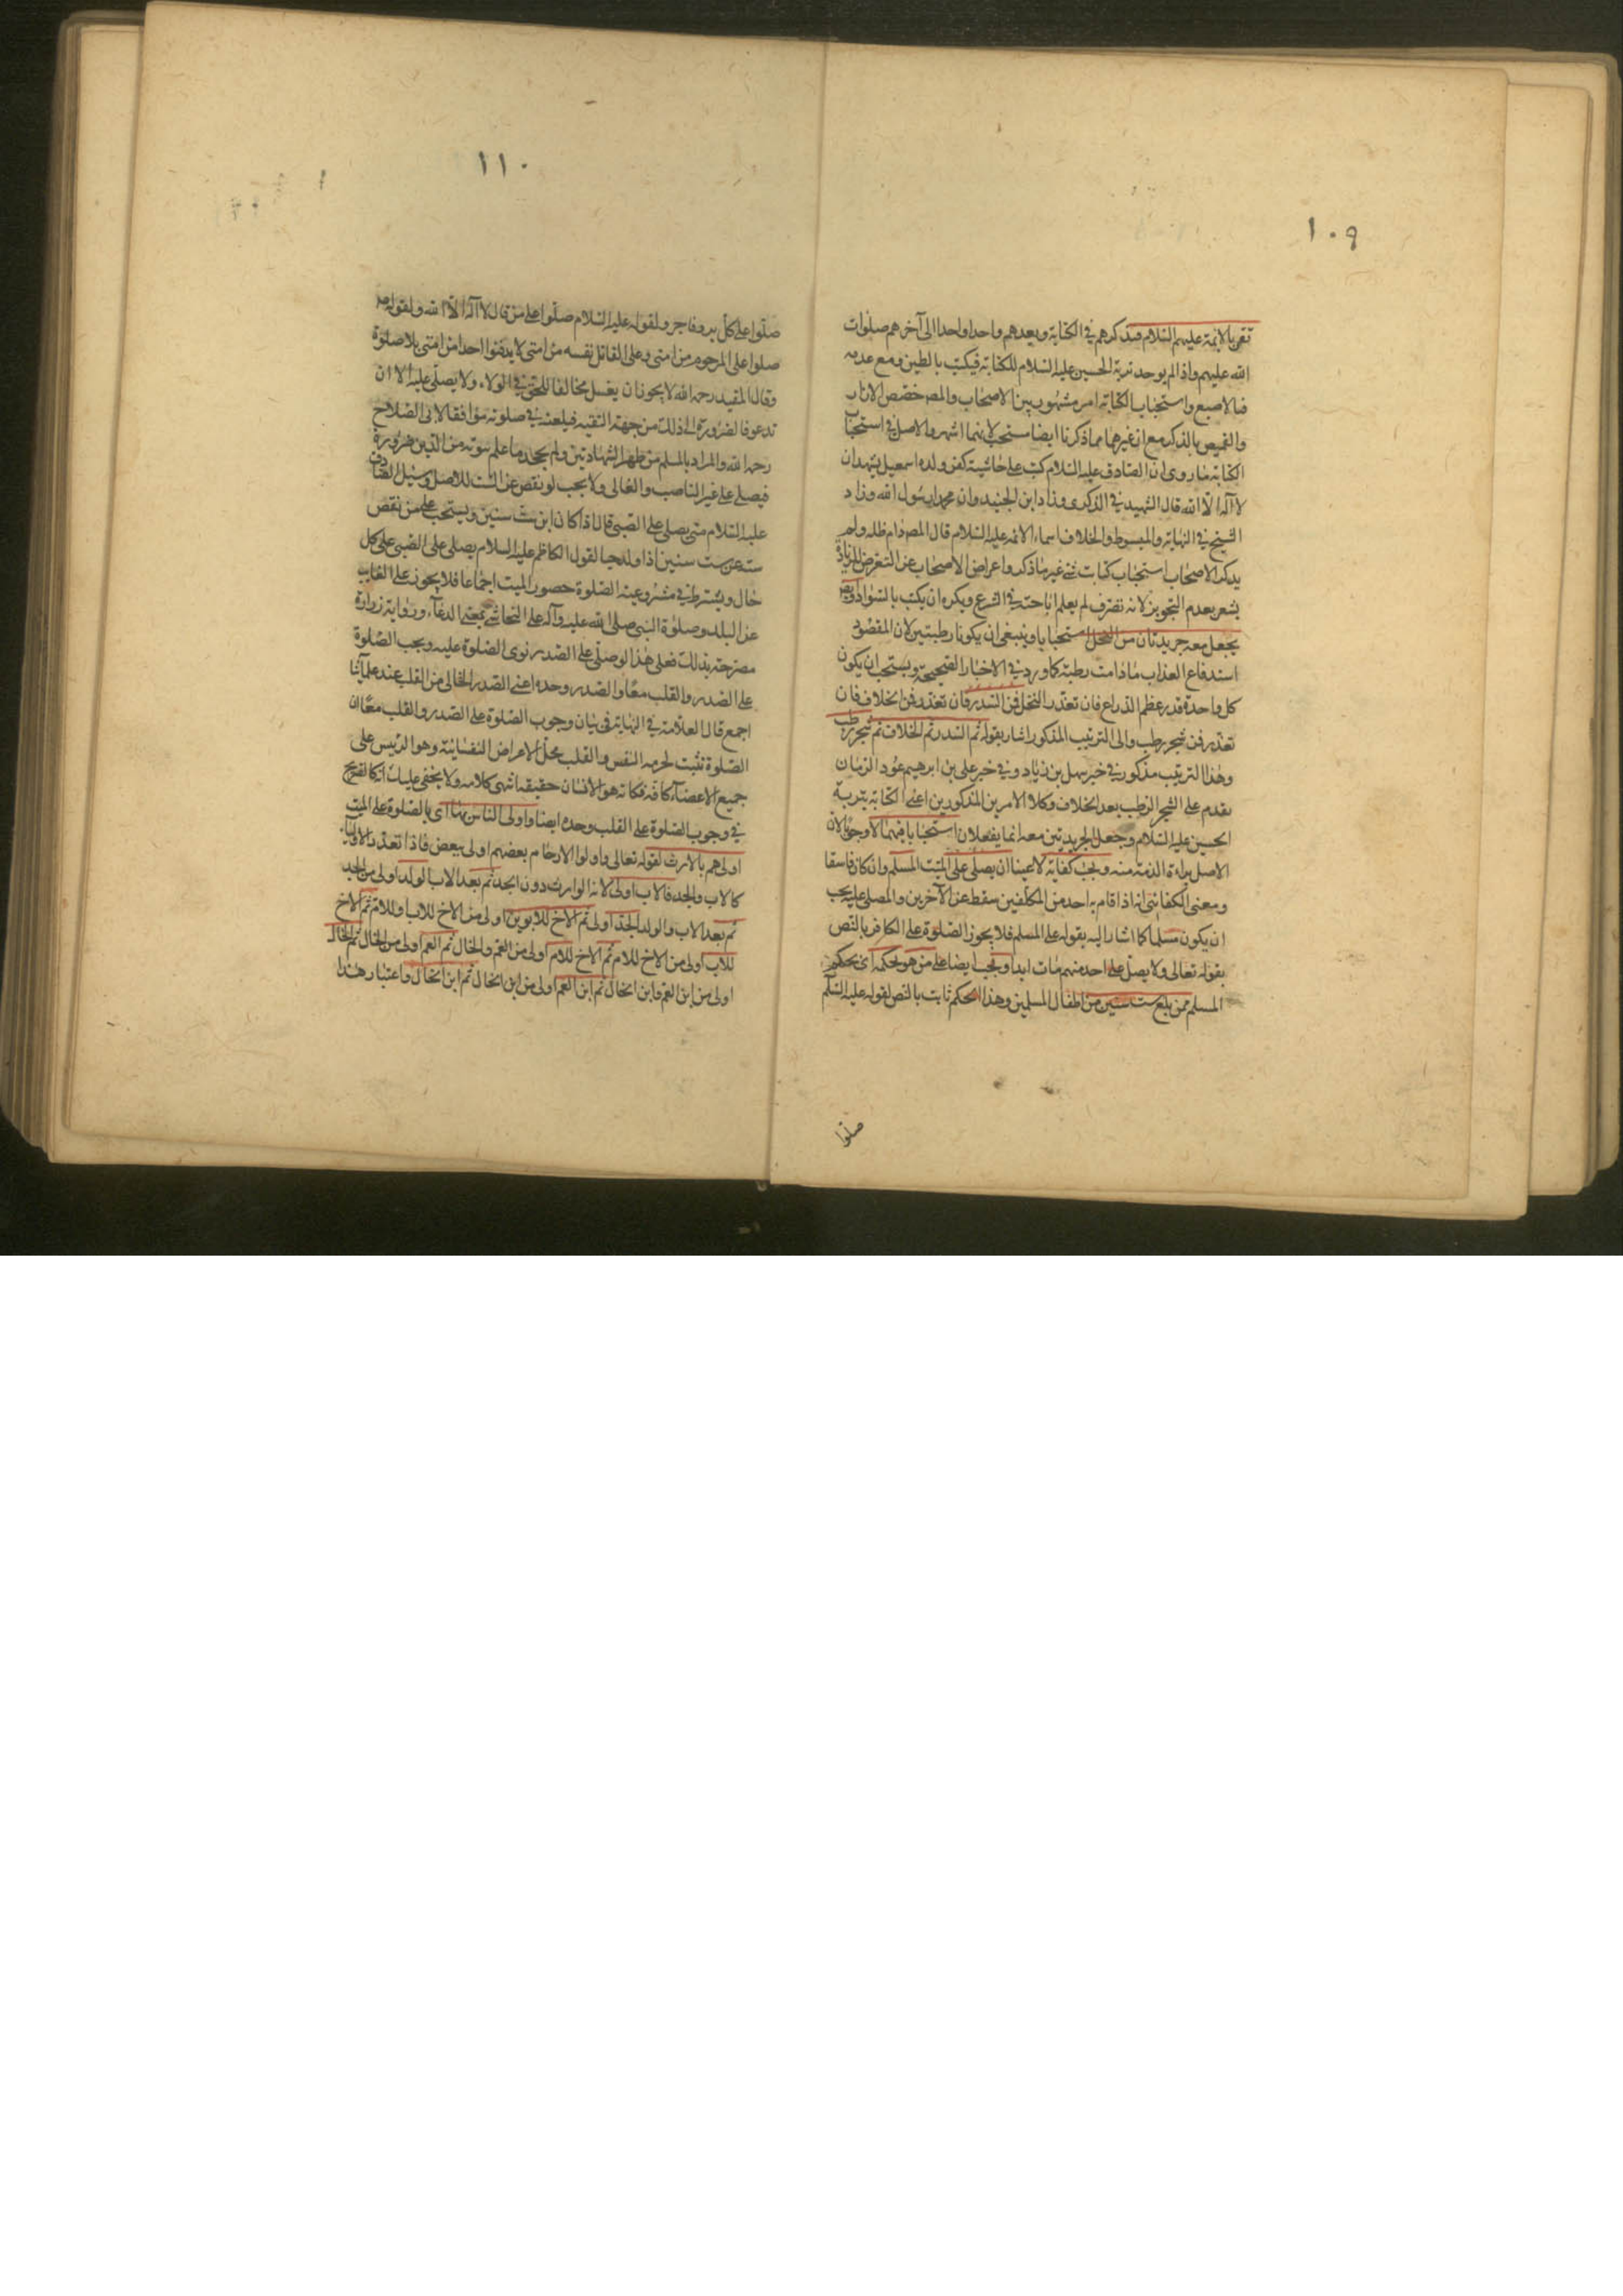 ١٠٩
تقر بالائمة عليهم السلام فيذكرهم في الكتابة ويعدهم واحدا واحدا الى آخرهم صلوات
الله عليهم واذا لم يوجد تربة الحسين عليه السلام للكتابة فيكتب بالطين ومع عدمه
فبالاصبع واستحباب الكتابة امر مشهور بين الاصحاب والمص خصص الازار
والقميص بالذكر مع ان غيرهما مما ذكرنا ايضا مستحب لانهما اشهر والاصل في استحباب
الكتابة ما روى ان الصادق عليه السلام كتب على حاشية كفن ولده اسمعيل يشهد ان
لا آله الا الله قال الشهيد في الذكرى وزاد ابن الجنيد وان محمدا رسول الله وزاد
الشيخ في النهاية والمبسوط والخلاف اسماء الائمة عليه السلام قال المص دام ظله ولم
يذكر الاصحاب استحباب كتابت شئ غير ما ذكر واعراض الاصحاب عن التعرض للزيادة
يشعر بعدم التجويز لانه تصرف لم يعلم اباحته في الشرع ويكره ان يكتب بالسواد
يجعل معه جريدتان من النخل استحبابا وينبغى ان يكونا رطبتين لان المقصود
استدفاع العذاب ما دامت رطبة كما ورد في الاخبار الصحيحة ويستحب ان يكون
كل واحدة قدر عظم الذراع فان تعذر النخل فمن السدر فان تعذر فمن الخلاف فان
تعذر فمن شجر رطب والى الترتيب المذكور اشار بقوله ثم السدر ثم الخلاف ثم شجر رطب
وهذا الترتيب مذكور في خبر سهل بن زياد وفي خبر على بن ابرهيم عود الرمان
يقدم على الشجر الرطب بعد الخلاف وكلا الامرين المذكورين اعنى الكتابة بتربة
الحسين عليه السلام وجعل الجريدتين معه انما يفعلان استحبابا فيهما لا وجوبا لان
الاصل براءة الذمة منه ويجب كفاية لا عينا ان يصلى على الميت المسلم وان كان فاسقا
ومعنى الكفائى انه اذا قام به احد من المكلفين سقط عن الآخرين والمصلى عليه يجب
ان يكون مسلما كما اشار اليه بقوله على المسلم فلا يجوز الصلوة على الكافر بالنص
بقوله تعالى ولا يصل على احد منهم مات ابدا ويجب ايضا على من هو بحكمه اى بحكم
المسلم ممن بلغ ست سنين من اطفال المسلمين وهذا الحكم ثابت بالنص لقوله عليه السلم
صلوا
١١٠
صلوا على كل بر وفاجر ولقوله عليه السلام صلوا على من قال لا آله الا الله ولقوله
صلوا على المرجوم من امتى وعلى القاتل نفسه من امتى لا يدفنوا احدا من امتى بلا صلوة
وقال المفيد رحمه الله لا يجوز ان يغسل مخالفا للحق في الولاء ولا يصلى عليه الا ان
تدعو الضرورة الى ذلك من جهة التقية فيلعنه في صلوته موافقا لابى الصلاح
رحمه الله والمراد بالمسلم من ظهر الشهادتين ولم يجحد ما علم ثبوته من الدين ضرورة
فيصلى على غير الناصب والغالى ولا يجب لو نقص عن الست للاصل وسئل الصادق
عليه السلام متى يصلى على الصبى قال اذا كان ابن ست سنين ويستحب على من نقص
سنه عن ست سنين اذا ولد حيا لقول الكاظم عليه السلام يصلى على الصبى على كل
حال ويشترط في مشروعية الصلوة حضور الميت اجماعا فلا يجوز على الغايب
عن البلد وصلوة النبى صلى الله عليه وآله على النجاشى بمعنى الدعآء ورواية زرارة
مصرحة بذلك فعلى هذا لو صلى على الصدر نوى الصلوة عليه ويجب الصلوة
على الصدر والقلب معًا والصدر وحده اعنى الصدر الخالى من القلب عند علمآئنا
اجمع قال العلامة في النهاية في بيان وجوب الصلوة على الصدر والقلب معًا ان
الصلوة تثبت لحرمة النفس والقلب محل الاعراض النفسانية وهو الرئيس على
جميع الاعضآء كافة فكانه هو الانسان حقيقة انتهى كلامه ولا يخفى عليك انه كالصريح
في وجوب الصلوة على القلب وحده ايضا واولى الناس بها اى بالصلوة على الميت
اولاهم بالارث لقوله تعالى واولوا الارحام بعضهم اولى ببعض فاذا تعدد الاوليآء
كالاب والجد فالاب اولى لانه الوارث دون الجد ثم بعد الاب الولد اولى من الجد
ثم بعد الاب والولد الجد اولى ثم الاخ للابوين اولى من الاخ للاب او للام ثم الاخ
للاب اولى من الاخ للام ثم الاخ للام اولى من العم والخال ثم العم اولى من الخال ثم الخال
اولى من ابن العم وابن الخال ثم ابن العم اولى من ابن الخال ثم ابن الخال واعتبار هذا